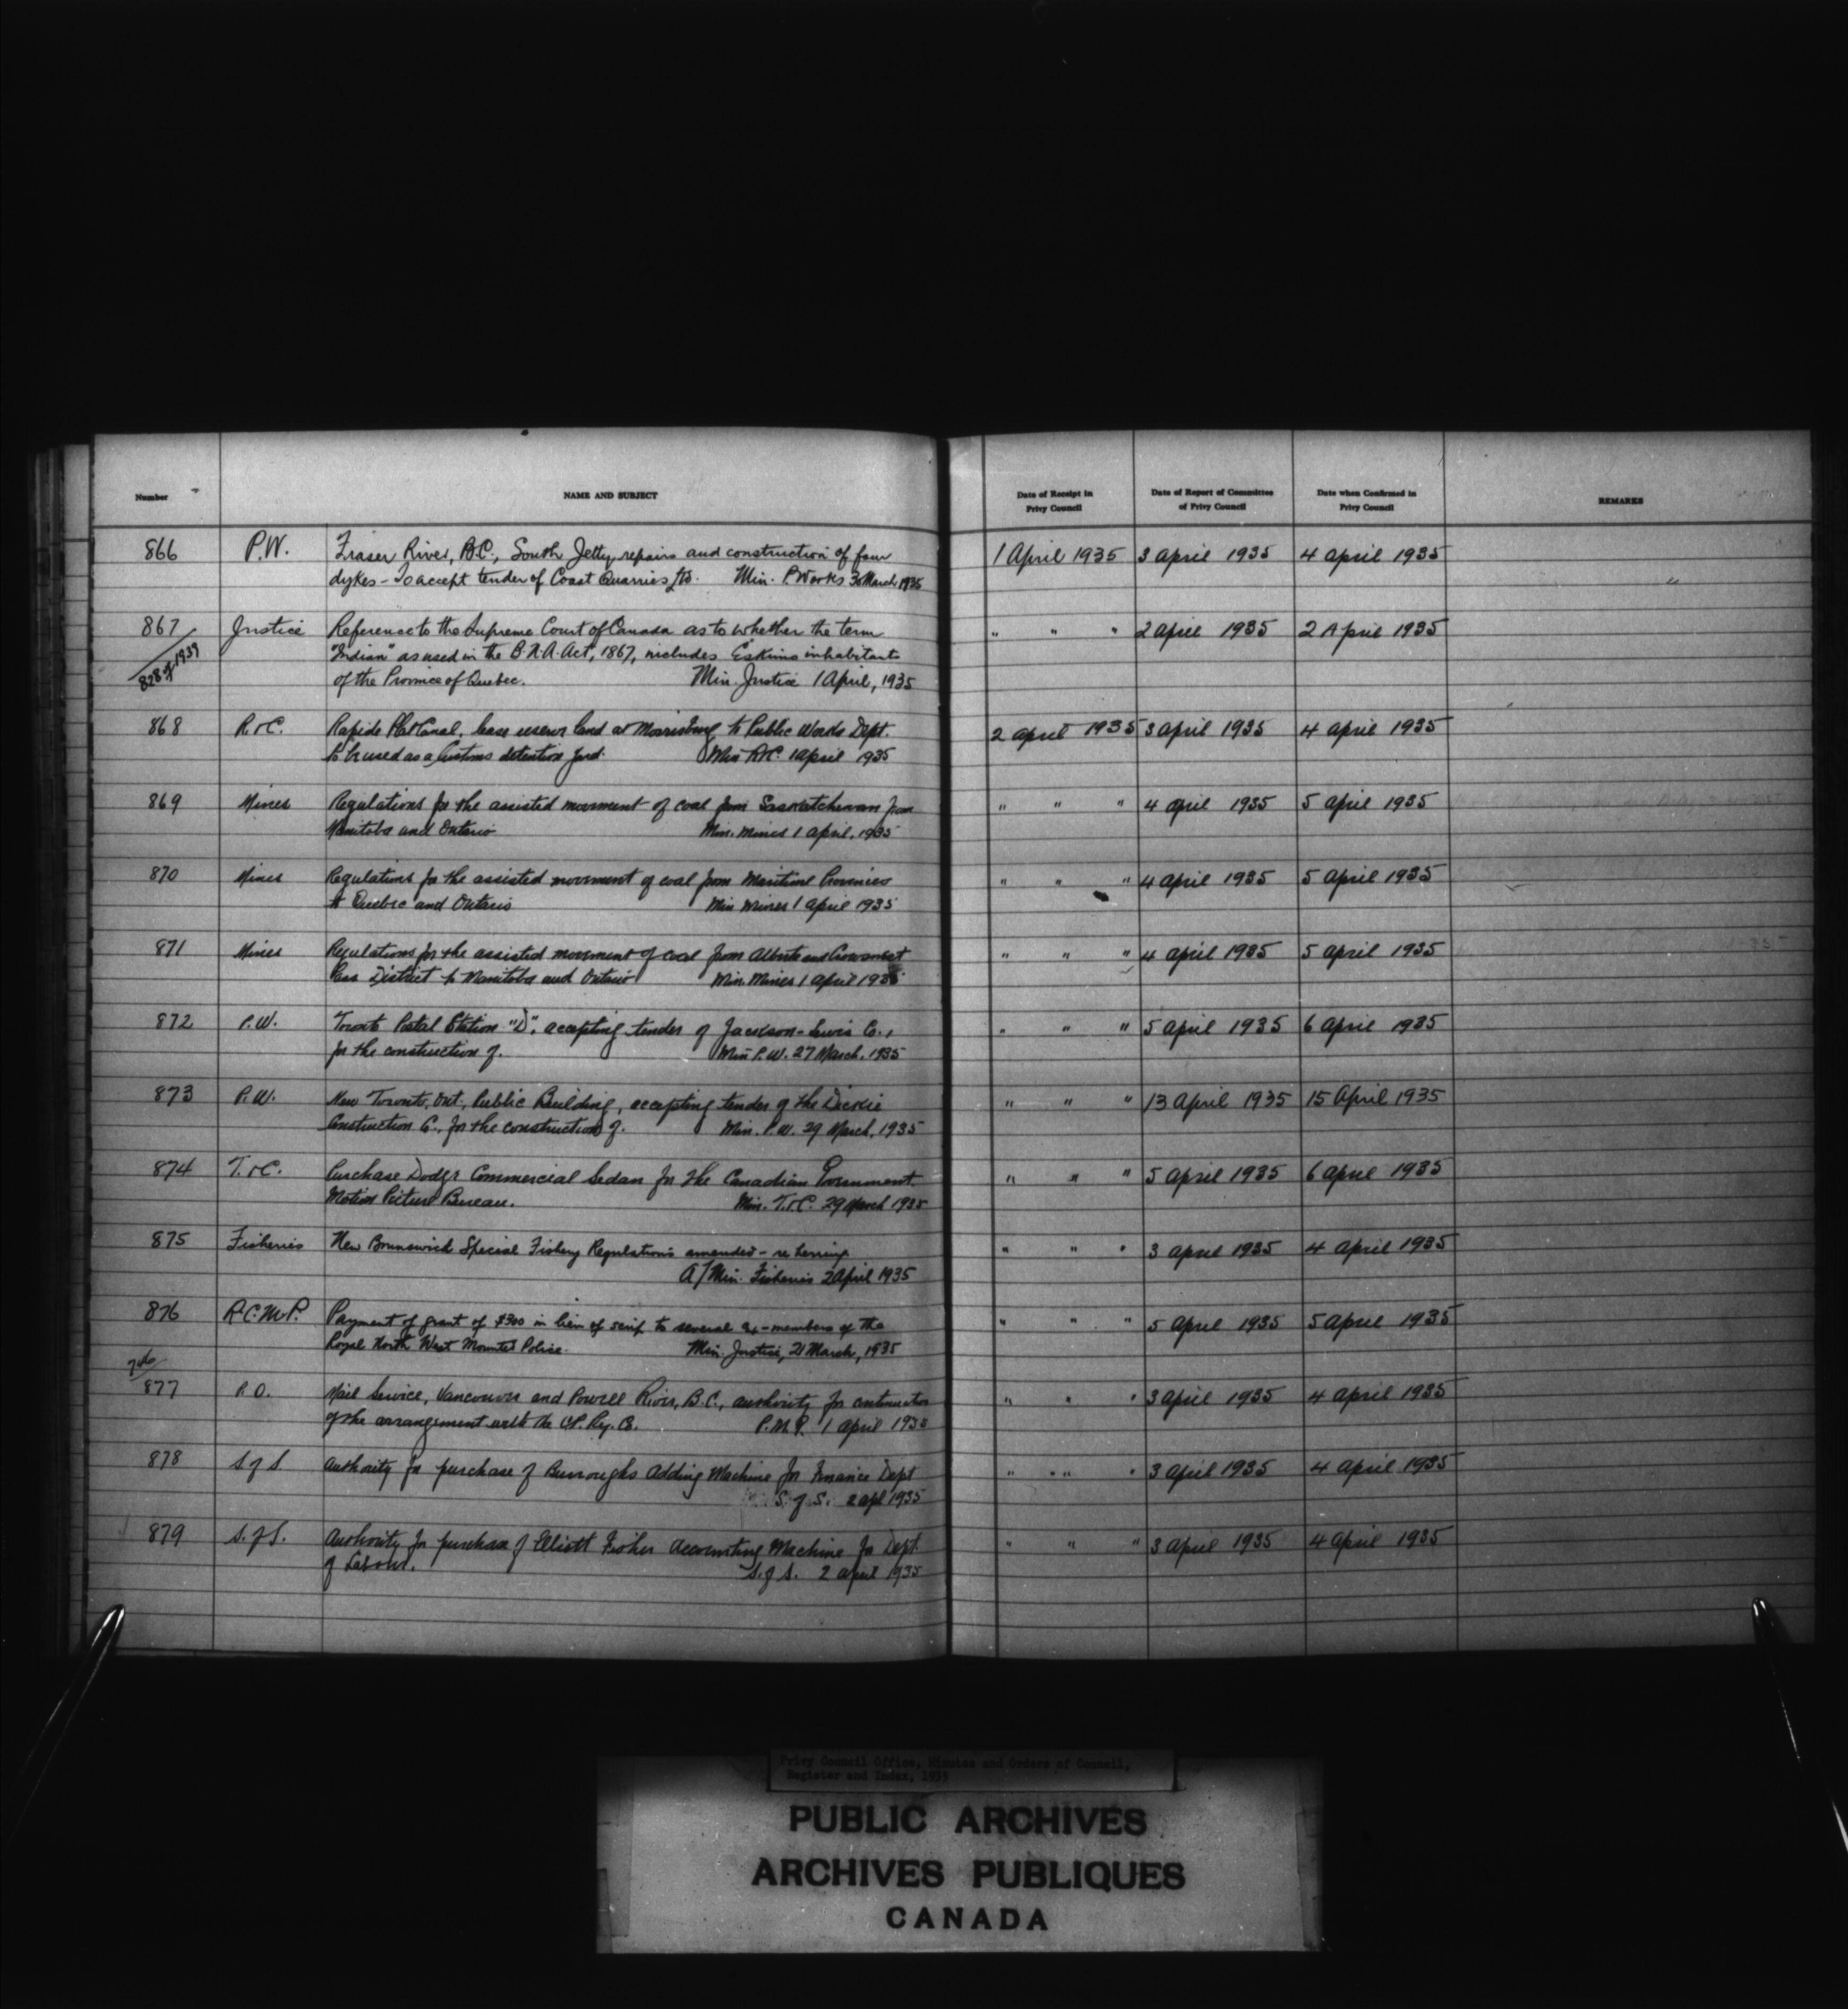 Number NAME AND SUBJECT Date of Receipt in Privy Council Date of Report of Committee of Privy Council Date when Confirmed in Privy Council REMARKS
866 P.W. Fraser River, B.C., South Jetty, repairs and construction of four 1 April 1935 3 April 1935 4 April 1935
dykes - To accept tender of Coast Quarries Ltd. Min. P. Works 30 March 1935 "
867 Justice Reference to the Supreme Court of Canada as to whether the term " " " 2 April 1935 2 April 1935
828 of 1939 "Indian" as used in the B.N.A. Act, 1867, includes Eskimo inhabitants
of the Province of Quebec. Min. Justice 1 April, 1935
868 R.&C. Rapide Plat Canal, lease reserve land at Morrisburg to Public Works Dept. 2 April 1935 3 April 1935 4 April 1935
to be used as a Customs detention yard. Min R&C. 1 April 1935
869 Mines Regulations for the assisted movement of coal from Saskatchewan from " " " 4 April 1935 5 April 1935
Manitoba and Ontario Min. Mines 1 April, 1935
870 Mines Regulations for the assisted movement of coal from Maritime Provinces " " " 4 April 1935 5 April 1935
to Quebec and Ontario Min Mines 1 April 1935
871 Mines Regulations for the assisted movement of coal from Alberta and Crowsnest " " " 4 April 1935 5 April 1935
Pass District to Manitoba and Ontario Min. Mines 1 April 1935
872 P.W. Toronto Postal Station "D", accepting tender of Jackson-Lewis Co., " " " 5 April 1935 6 April 1935
for the construction of. Min P.W. 27 March, 1935
873 P.W. New Toronto, Ont., Public Building, accepting tender of the Dickie " " " 13 April 1935 15 April 1935
Construction Co., for the construction of. Min. P.W. 29 March, 1935
874 T.&C. Purchase Dodge Commercial Sedan for the Canadian Government " " " 5 April 1935 6 April 1935
Motion Picture Bureau. Min. T.&C. 29 March 1935
875 Fisheries New Brunswick Special Fishery Regulations amended - re herring " " " 3 April 1935 4 April 1935
A/Min. Fisheries 2 April 1935
876 R.C.M.P. Payment of grant of $300 in lieu of scrip to several ex-members of the " " " 5 April 1935 5 April 1935
Royal North West Mounted Police. Min. Justice, 21 March, 1935
877 P.O. Mail Service, Vancouver and Powell River, B.C., authority for continuation " " " 3 April 1935 4 April 1935
of the arrangement with the C.P. Ry. Co. P.M.G. 1 April 1935
878 S of S. Authority for purchase of Burroughs Adding Machine for Finance Dept " " " 3 April 1935 4 April 1935
S. of S. 2 Apl 1935
879 S. of S. Authority for purchase of Elliott Fisher Accounting Machine for Dept. " " " 3 April 1935 4 April 1935
of Labour. S. of S. 2 April 1935
Privy Council Office, Minutes and Orders of Council,
Register and Index, 1935
PUBLIC ARCHIVES
ARCHIVES PUBLIQUES
CANADA